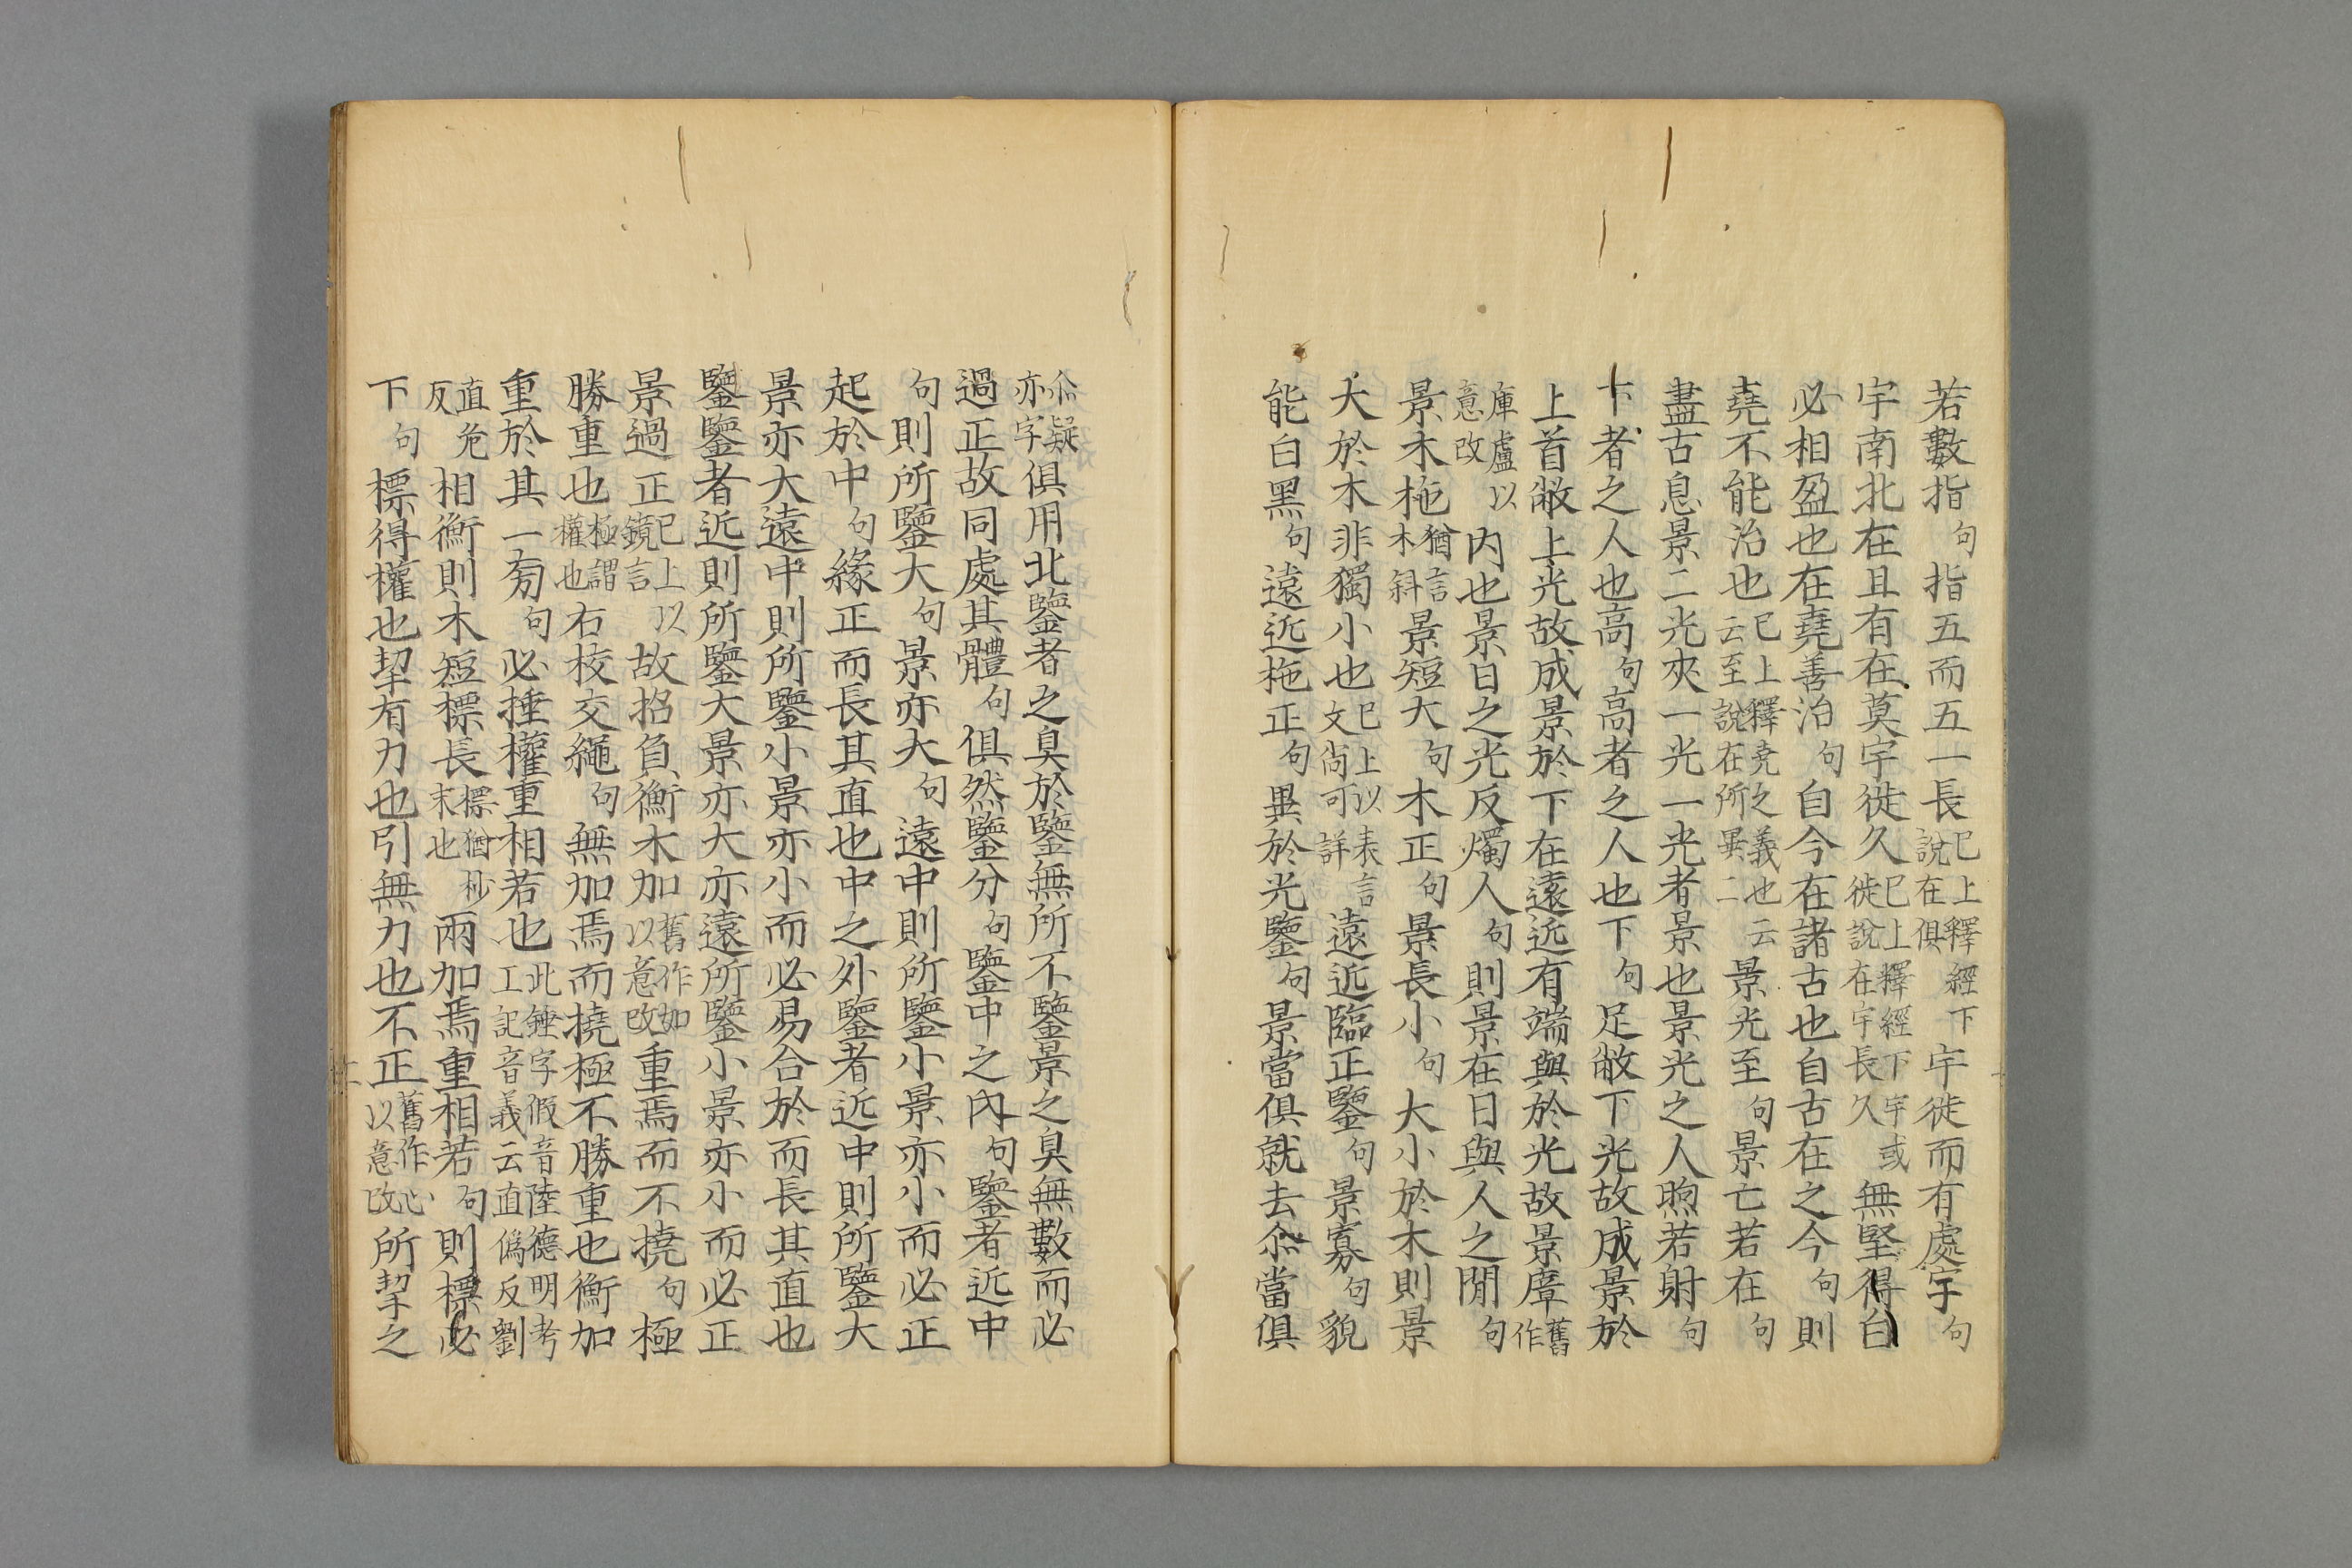 若數指句指五而五一長巳上釋經下說在俱宇徙而有處宇句
宇南北在且有在莫宇徙久巳上釋經下宇或徙說在宇長久無堅得白
必相盈也在堯善治句自今在諸古也自古在之今句則
堯不能治也巳上釋堯之義也云云至說在所異二景光至句景亡若在句
盡古息景二光夾一光一光者景也景光之人煦若射句
下者之人也高句高者之人也下句足敝下光故成景於
上首敝上光故成景於下在遠近有端與於光故景㢓舊作
庫盧以意改內也景日之光反燭人句則景在日與人之閒句
景木柂猶言木斜景短大句木正句景長小句大小於木則景
大於木非獨小也巳上以表言文尚可詳遠近臨正鑒句景寡句貌
能白黑句遠近柂正句異於光鑒句景當俱就去尒當俱
尒疑亦字俱用北鑒者之臭於鑒無所不鑒景之臭無數而必
過正故同處其體句俱然鑒分句鑒中之內句鑒者近中
句則所鑒大句景亦大句遠中則所鑒小景亦小而必正
起於中句緣正而長其直也中之外鑒者近中則所鑒大
景亦大遠中則所鑒小景亦小而必易合於而長其直也
鑒鑒者近則所鑒大景亦大亦遠所鑒小景亦小而必正
景過正巳上以鏡言故招負衡木加舊作如以意改重焉而不撓句極
勝重也極謂權也右校交繩句無加焉而撓極不勝重也衡加
重於其一旁句必捶權重相若也此錘字假音陸德明考工記音義云直僞反劉
直危反相衡則木短標長標猶杪末也兩加焉重相若句則標必
下句標得權也挈有力也引無力也不正舊作心以意改所挈之